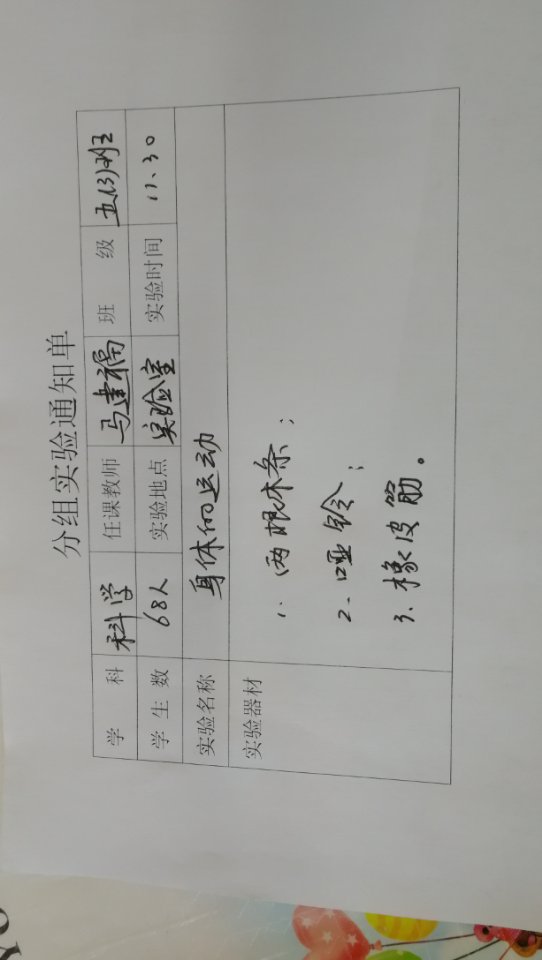 分组实验通知单
学 科 科学 任课教师 马建福 班 级 五(3)班
学 生 数 68人 实验地点 实验室 实验时间 11.30
实验名称 身体的运动
实验器材
1、两根木条；
2、哑铃；
3、橡皮筋。